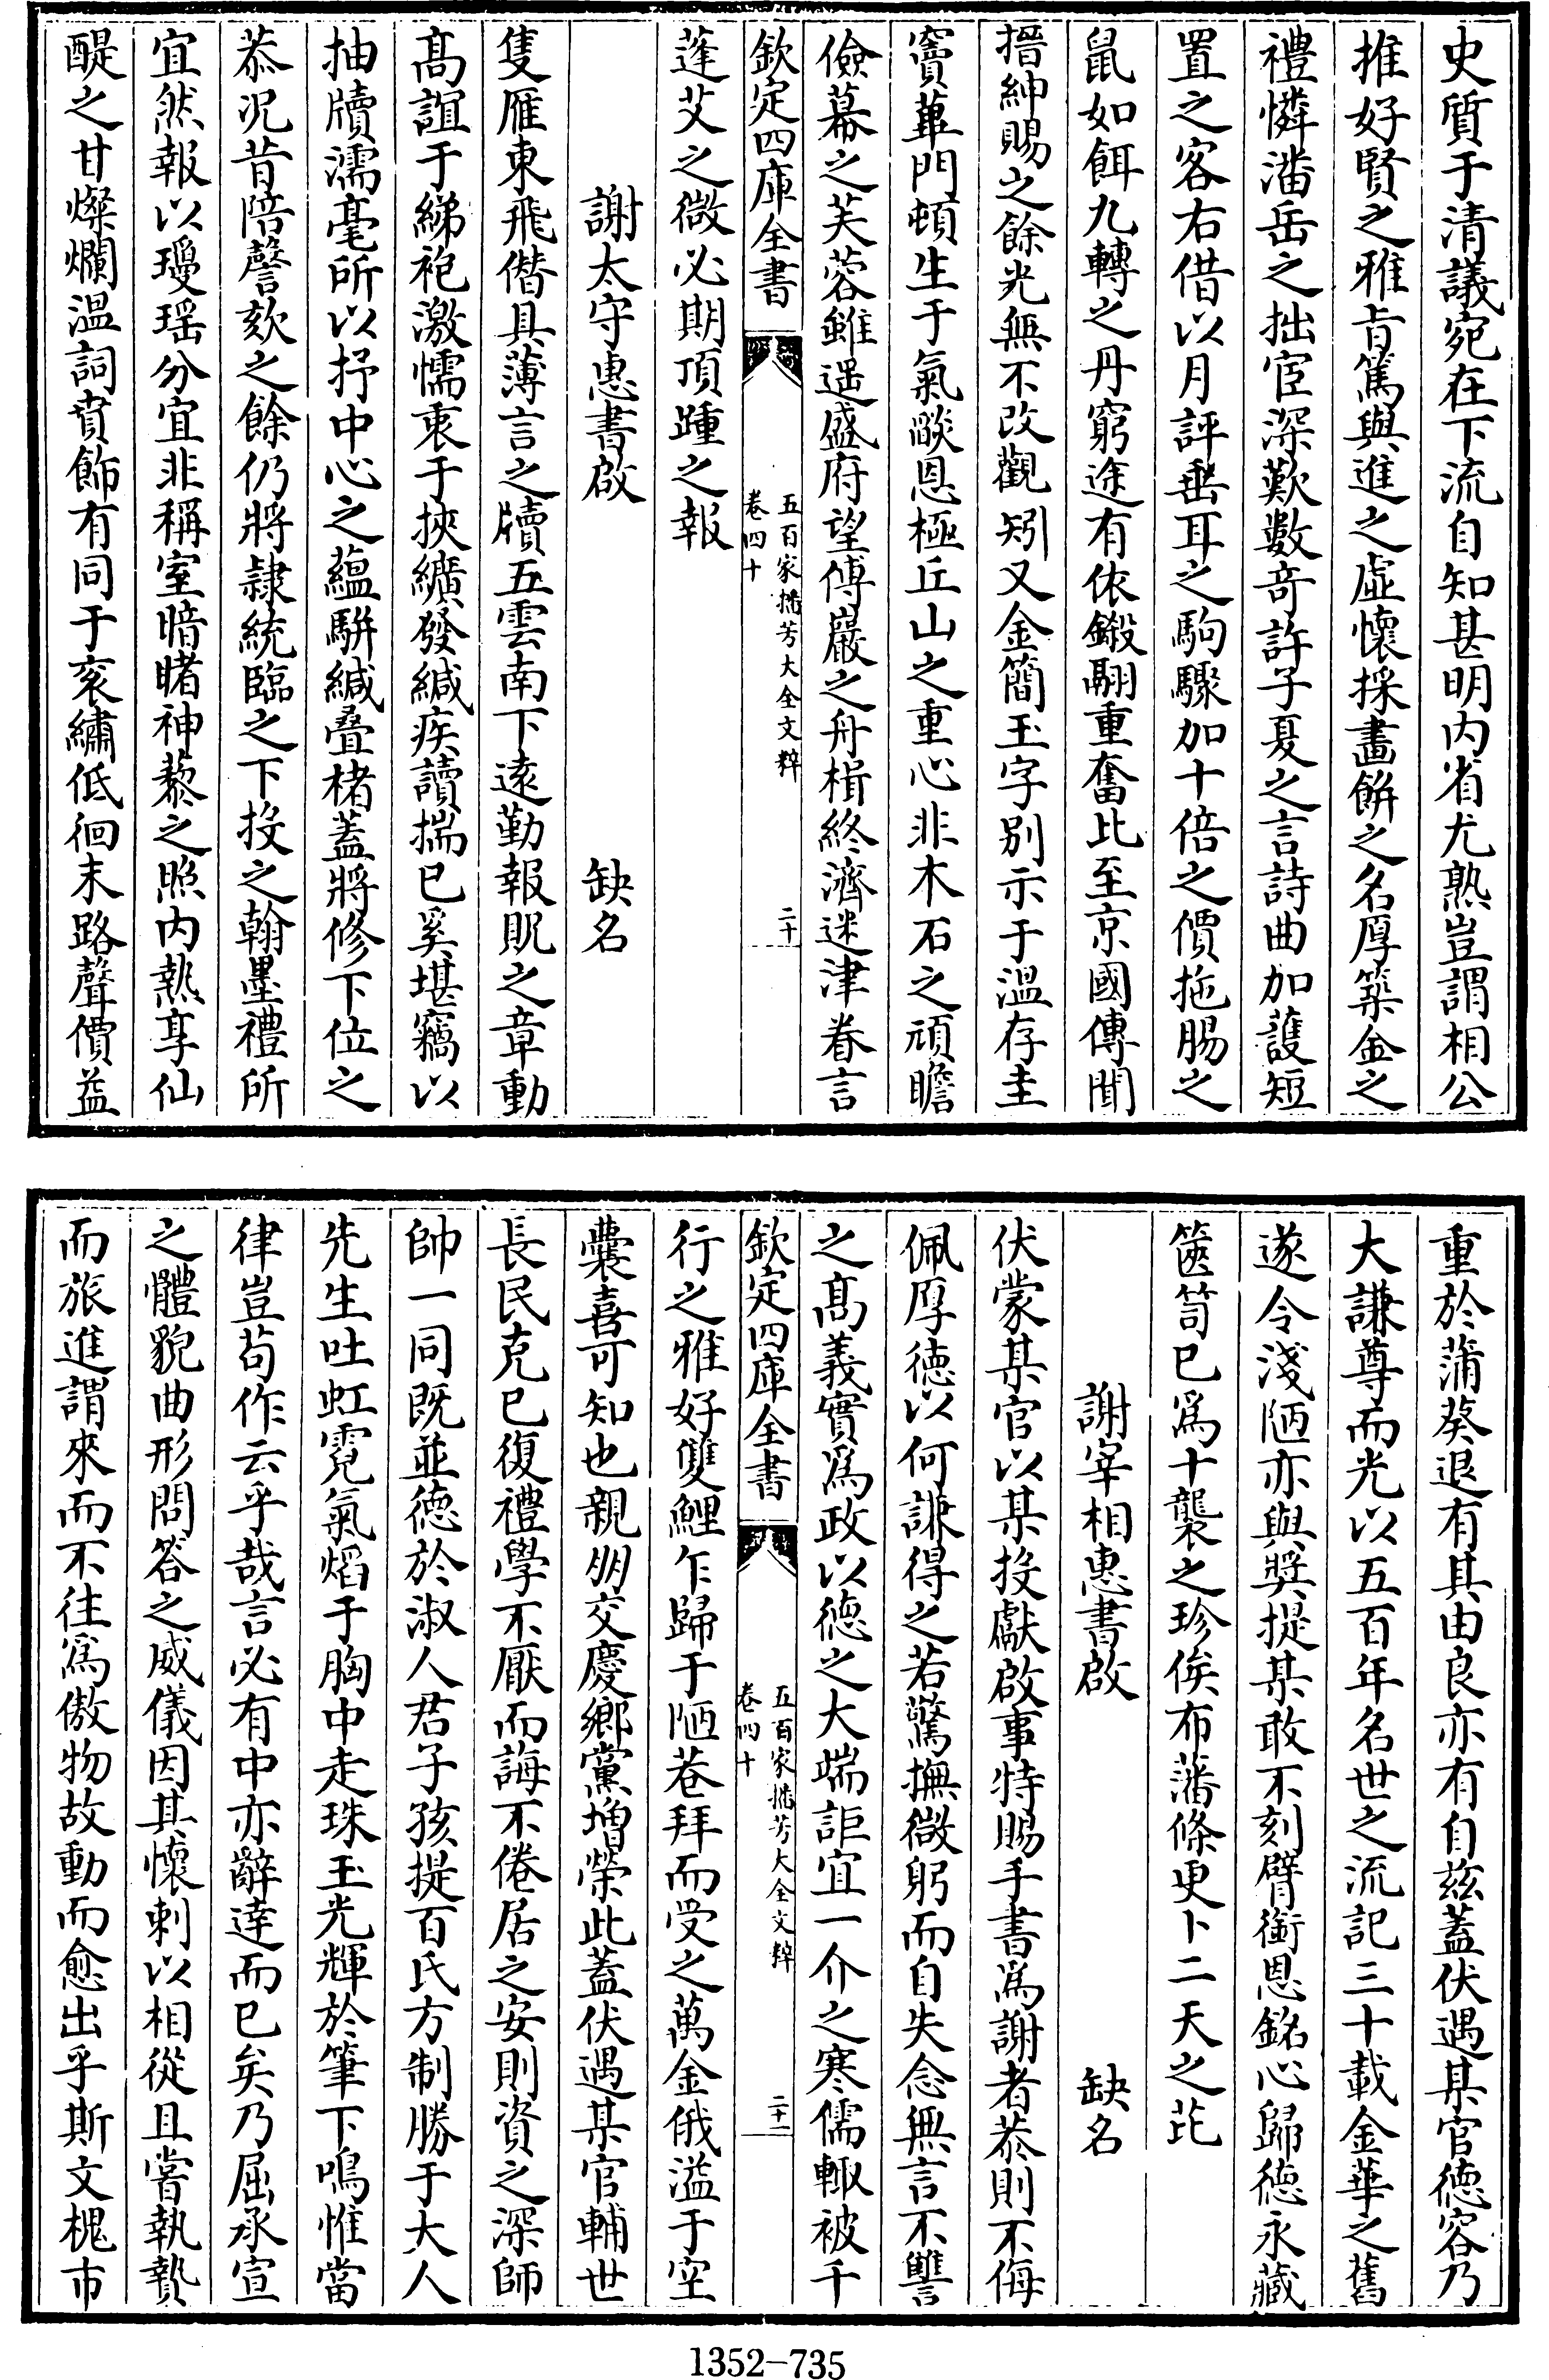 史質于清議宛在下流自知甚明内省尤熟豈謂相公
推好賢之雅㫖篤與進之虚懷採畫餅之名厚築金之
禮憐潘岳之拙宦深歎數竒許子夏之言詩曲加䕶短
置之客右借以月評垂耳之駒驟加十倍之價拖腸之
鼠如餌九轉之丹窮途有依鎩翮重奮比至京國傳聞
搢紳賜之餘光無不改觀矧又金簡玉字别示于温存圭
竇蓽門頓生于氣燄恩極丘山之重心非木石之頑瞻
儉幕之芙蓉雖遥盛府望傅巖之舟楫終濟迷津眷言
欽定四庫全書
五百家播芳大全文粹
卷四十
二十
蓬艾之微必期頂踵之報
謝太守惠書啟
缺名
隻雁東飛僣具薄言之牘五雲南下逺勤報貺之章動
髙誼于綈袍激懦衷于挾纊發緘疾讀揣已奚堪竊以
抽牘濡毫所以抒中心之藴駢緘疊楮蓋將修下位之
恭况昔陪謦欬之餘仍將隷統臨之下投之翰墨禮所
宜然報以瓊瑶分宜非稱室暗睹神藜之照内熱享仙
醍之甘燦爛温詞賁飾有同于衮繡低徊末路聲價益
重於蒲葵退有其由良亦有自兹蓋伏遇某官徳容乃
大謙尊而光以五百年名世之流記三十載金華之舊
遂令淺陋亦與奬提某敢不刻臂銜恩銘心歸徳永藏
篋笥已為十襲之珍俟布藩條更卜二天之芘
謝宰相惠書啟
缺名
伏蒙某官以某投獻啟事特賜手書為謝者恭則不侮
佩厚徳以何謙得之若驚撫微躬而自失念無言不讐
之髙義實為政以徳之大端詎宜一介之寒儒輙被千
欽定四庫全書
五百家播芳大全文粹
卷四十
二十一
行之雅好雙鯉乍歸于陋巷拜而受之萬金俄溢于空
囊喜可知也親朋交慶鄉黨增榮此蓋伏遇某官輔世
長民克已復禮學不厭而誨不倦居之安則資之深師
帥一同既並徳於淑人君子孩提百氏方制勝于大人
先生吐虹霓氣熖于胸中走珠玉光輝於筆下鳴惟當
律豈茍作云乎哉言必有中亦辭達而已矣乃屈承宣
之體貎曲形問答之威儀因其懐刺以相從且嘗執贄
而旅進謂來而不往為傲物故動而愈出乎斯文槐市
1352-735